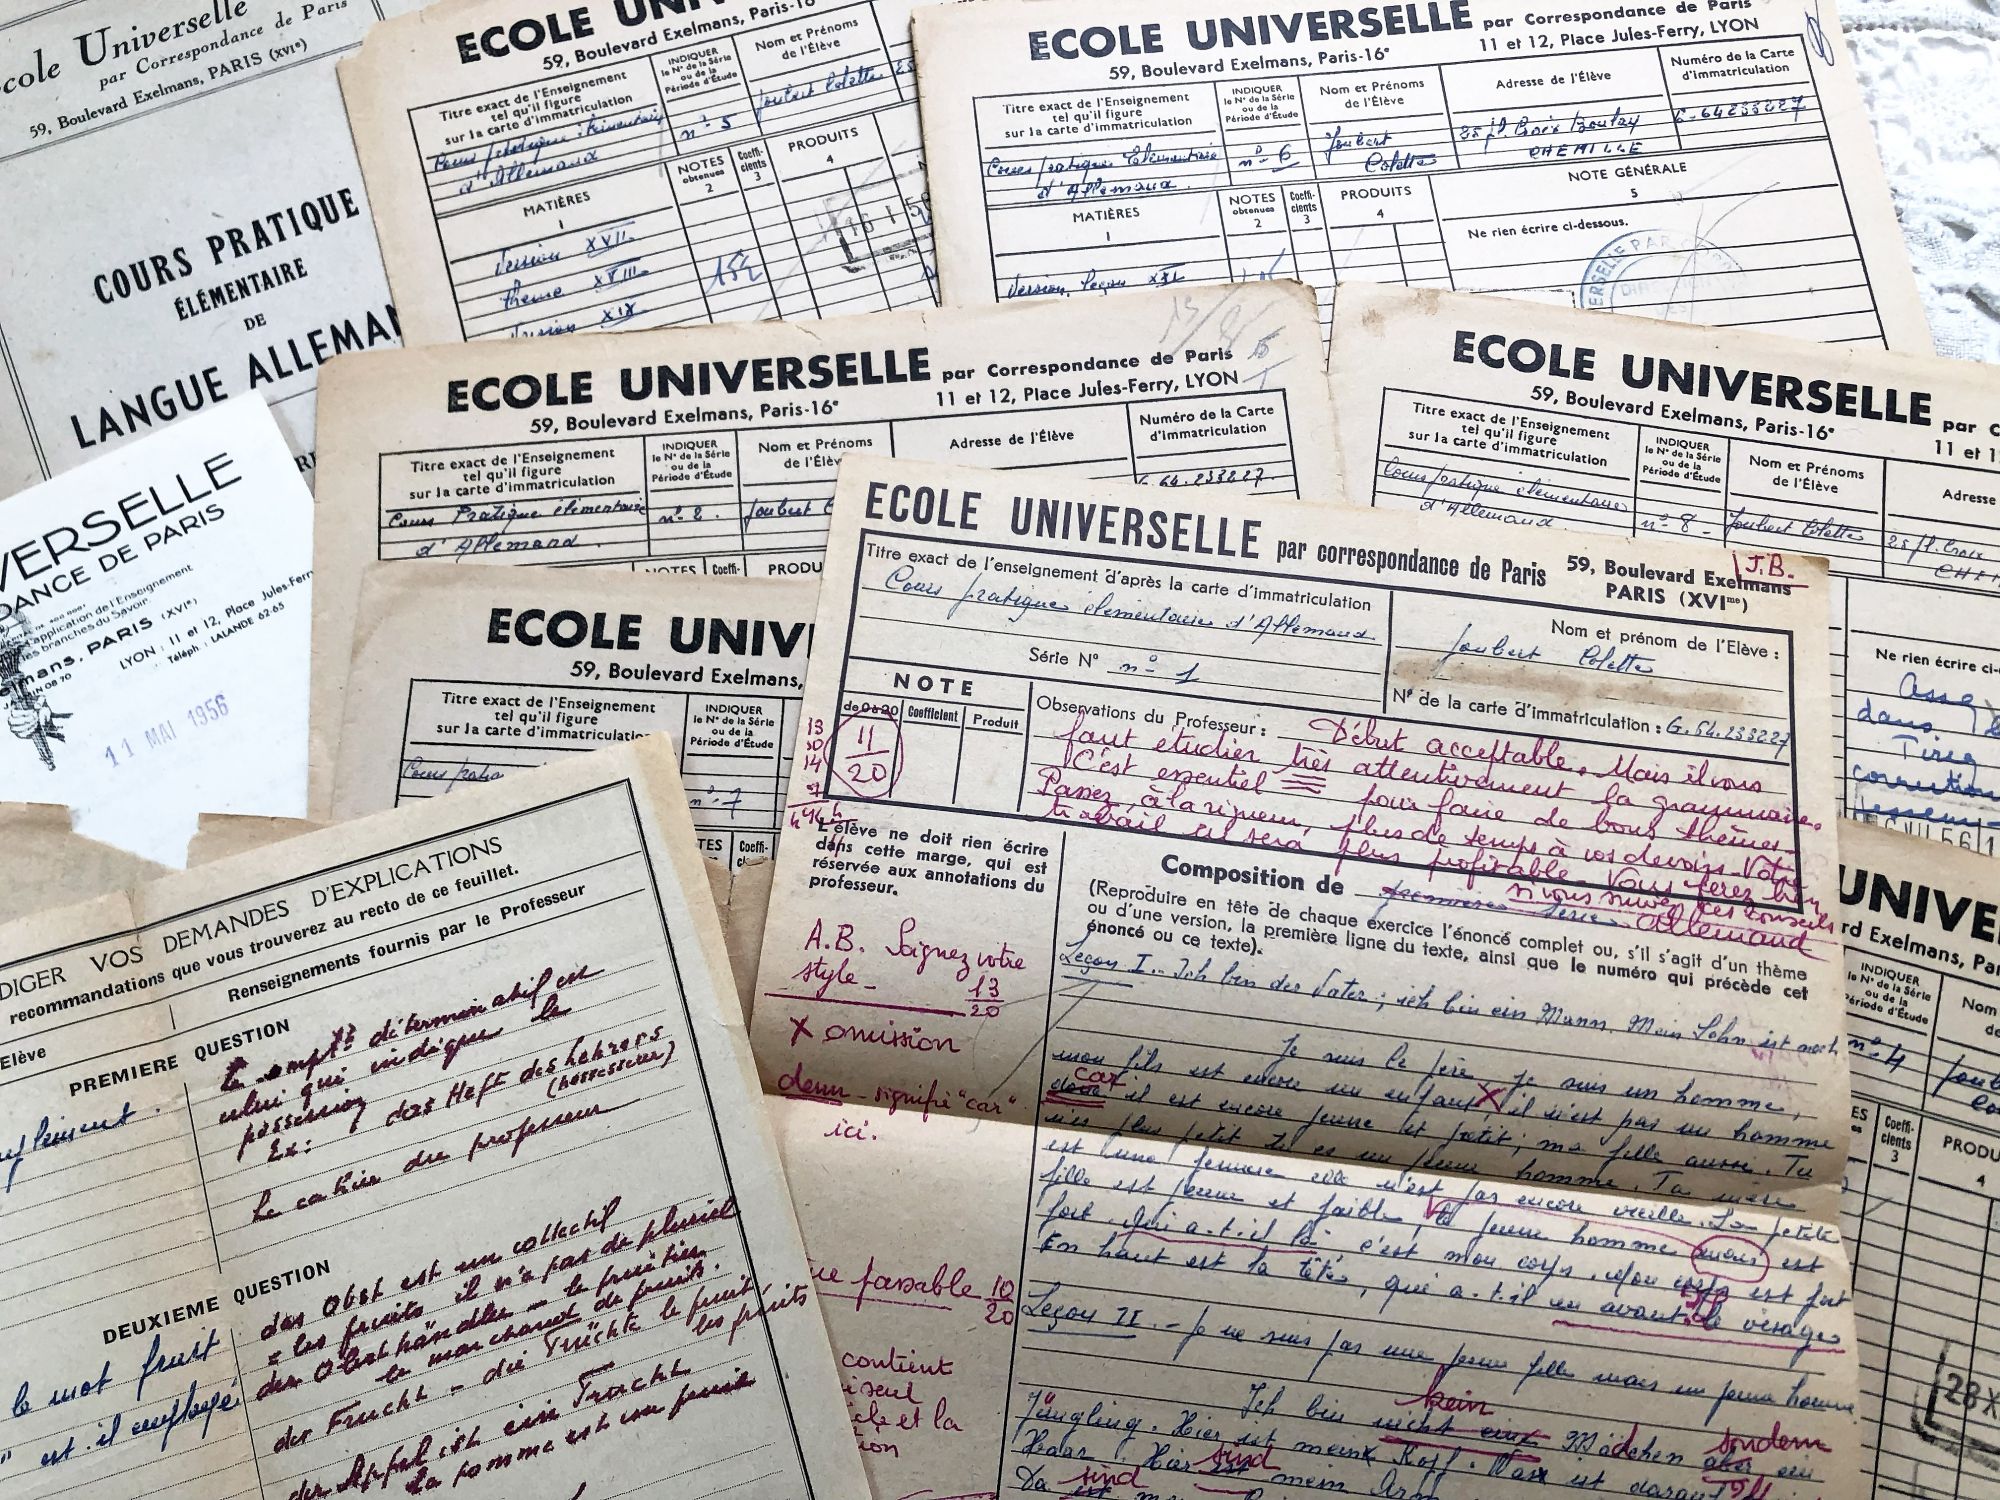 Ecole Universelle
par Correspondance de Paris
59, Boulevard Exelmans, PARIS (XVIe)
COURS PRATIQUE
ÉLÉMENTAIRE
DE
LANGUE ALLEMAN
VERSELLE
DANCE DE PARIS
application de l'Enseignement
branches du Savoir
mans, PARIS (XVIe)
LYON : 11 et 12, Place Jules-Ferr
Téléph : LALANDE 62-65
11 MAI 1956
ECOLE UN
59, Boulevard Exelmans, Paris-16e
Titre exact de l'Enseignement
tel qu'il figure
sur la carte d'immatriculation
INDIQUER
le N° de la Série
ou de la
Période d'Étude
Nom et Prénoms
de l'Élève
Cours pratique élémentaire
d'Allemand
n° 5
Joubert Colette
MATIÈRES
1
NOTES
obtenues
2
Coeffi-
cients
3
PRODUITS
4
version XVII
thème XVIII
version XIX
ECOLE UNIVERSELLE par Correspondance de Paris
59, Boulevard Exelmans, Paris-16e
11 et 12, Place Jules-Ferry, LYON
Titre exact de l'Enseignement
tel qu'il figure
sur la carte d'immatriculation
INDIQUER
le N° de la Série
ou de la
Période d'Étude
Nom et Prénoms
de l'Élève
Adresse de l'Élève
Numéro de la Carte
d'immatriculation
Cours pratique Elémentaire
d'Allemand
n° 6
Joubert
Colette
CHEMILLE
G-64233227
MATIÈRES
1
NOTES
obtenues
2
Coeffi-
cients
3
PRODUITS
4
NOTE GÉNÉRALE
5
Ne rien écrire ci-dessous.
Version, leçon XXI
ECOLE UNIVERSELLE par Correspondance de Paris
59, Boulevard Exelmans, Paris-16e
11 et 12, Place Jules-Ferry, LYON
Titre exact de l'Enseignement
tel qu'il figure
sur la carte d'immatriculation
INDIQUER
le N° de la Série
ou de la
Période d'Étude
Nom et Prénoms
de l'Élève
Adresse de l'Élève
Numéro de la Carte
d'immatriculation
Cours Pratique élémentaire
d'Allemand
n° 2
Joubert C
G.64.233227
NOTES
Coeffi-
PRODU
ECOLE UNIVERSELLE par C
59, Boulevard Exelmans, Paris-16e
11 et 1
Titre exact de l'Enseignement
tel qu'il figure
sur la carte d'immatriculation
INDIQUER
le N° de la Série
ou de la
Période d'Étude
Nom et Prénoms
de l'Élève
Adresse
Cours pratique élémentaire
d'Allemand
n° 8
Joubert Colette
25 pl. Croix
Ne rien écrire ci-
dans
ECOLE UNIV
59, Boulevard Exelmans,
Titre exact de l'Enseignement
tel qu'il figure
sur la carte d'immatriculation
INDIQUER
le N° de la Série
ou de la
Période d'Étude
n° 7
ECOLE UNIVERSELLE par correspondance de Paris
59, Boulevard Exelmans
PARIS (XVIme)
J.B.
Titre exact de l'enseignement d'après la carte d'immatriculation
Cours pratique élémentaire d'Allemand
Série N° n° 1
Nom et prénom de l'Elève :
Joubert Colette
N° de la carte d'immatriculation : G.64.233227
NOTE
de 0 à 20
Coefficient
Produit
11
20
Observations du Professeur : Début acceptable. Mais il vous
faut étudier très attentivement la grammaire.
C'est essentiel pour faire de bons thèmes.
Passez, à la rigueur, plus de temps à vos devoirs. Votre
travail en sera plus profitable. Vous ferez bien
si vous suivez ces conseils
L'élève ne doit rien écrire
dans cette marge, qui est
réservée aux annotations du
professeur.
Composition de première série Allemand
(Reproduire en tête de chaque exercice l'énoncé complet ou, s'il s'agit d'un thème
ou d'une version, la première ligne du texte, ainsi que le numéro qui précède cet
énoncé ou ce texte).
A.B. Soignez votre
style
13
20
x omission
denn - signifie "car"
ici.
Leçon I.. Ich bin der Vater ; ich bin ein Mann. Mein Sohn ist noch
Je suis le père, je suis un homme,
mon fils est encore un enfant X il n'est pas un homme
car
il est encore jeune et petit ; ma fille aussi. Tu
n'es plus petit tu es un jeune homme. Ta mère
est une femme elle n'est pas encore vieille. La petite
fille est jeune et faible, le jeune homme est
fort. Qui a-t-il là c'est mon corps. Mon corps est fort
En haut est la tête, qui a-t-il en avant le visage
passable 10
20
contient
seul
cle et la
tion
Leçon II. - Je ne suis pas une jeune fille mais un jeune homme.
kein
Ich bin nicht eine Mädchen aber ein
sondern
Jüngling. Hier ist meine Kopf. Was ist darauf
sind
Haar. Hier ist mein Arm
sind
Da ist
DIGER VOS DEMANDES D'EXPLICATIONS
recommandations que vous trouverez au recto de ce feuillet.
Elève
Renseignements fournis par le Professeur
PREMIERE QUESTION
Le compt déterminatif est
celui qui indique le
possesseur
Ex : das Heft des Lehrers
(possesseur)
Le cahier du professeur
DEUXIEME QUESTION
le mot fruit
est-il employé
das Obst est un collectif
= les fruits il n'a pas de pluriel
der Obsthändler - le fruitier
le marchand de fruits.
der Frucht - die Früchte le fruit
les fruits
der Apfel ist ein Frucht
la pomme est un fruit
UNIVE
rd Exelmans, Pa
INDIQUER
le N° de la Série
ou de la
Période d'Étude
Nom
n° 4
Joub
Coeffi-
cients
3
PRODU
4
28 X